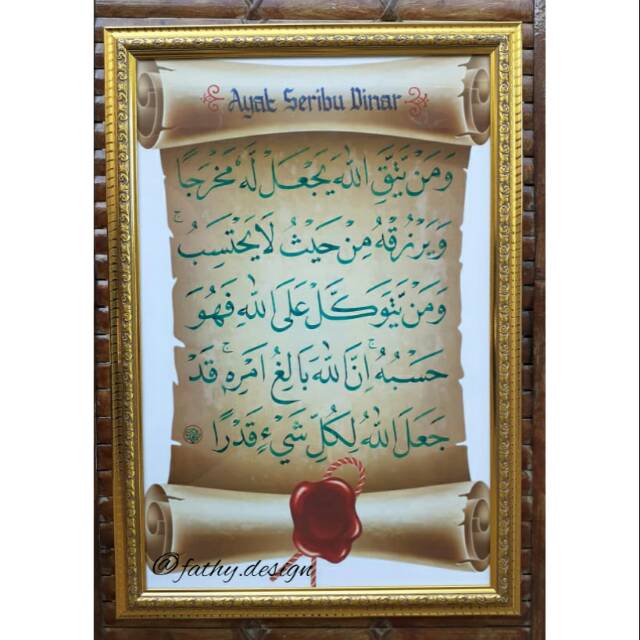 Ayat Seribu Dinar
وَمَنْ يَتَّقِ اللّٰهَ يَجْعَلْ لَهٗ مَخْرَجًا
وَيَرْزُقْهُ مِنْ حَيْثُ لَا يَحْتَسِبُ ۚ
وَمَنْ يَتَوَكَّلْ عَلَى اللّٰهِ فَهُوَ
حَسْبُهٗ ۚ اِنَّ اللّٰهَ بَالِغُ اَمْرِهٖ ۚ قَدْ
جَعَلَ اللّٰهُ لِكُلِّ شَيْءٍ قَدْرًا
@fathy.design